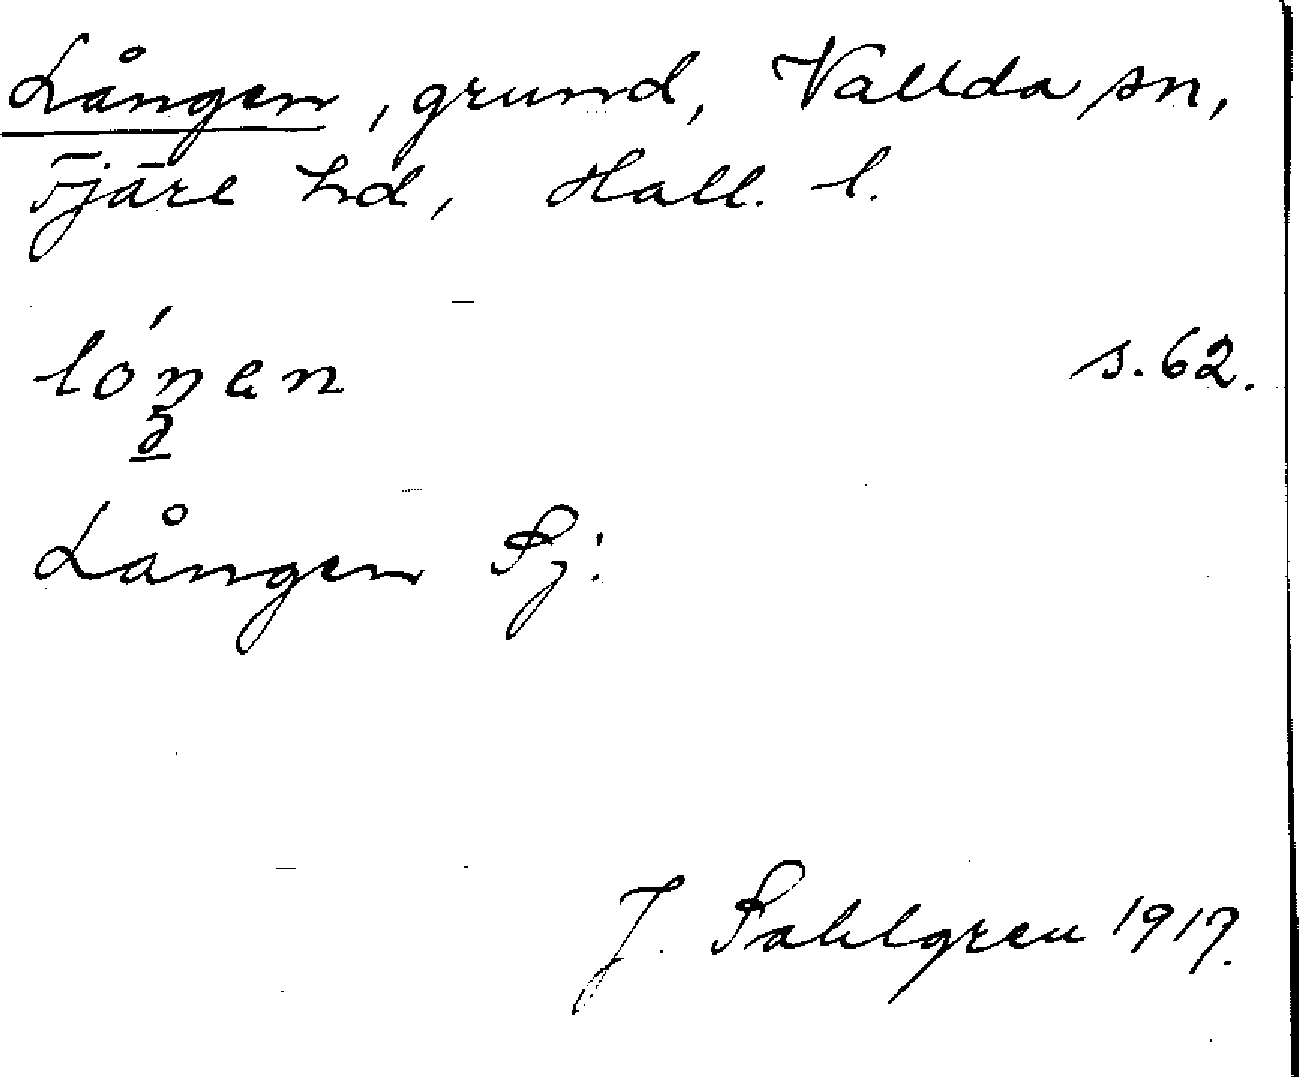 Lången, grund, Vallda sn,
Fjäre hd, Hall. l.
s. 62.
Lången Sj:
J. Sahlgren 1917.